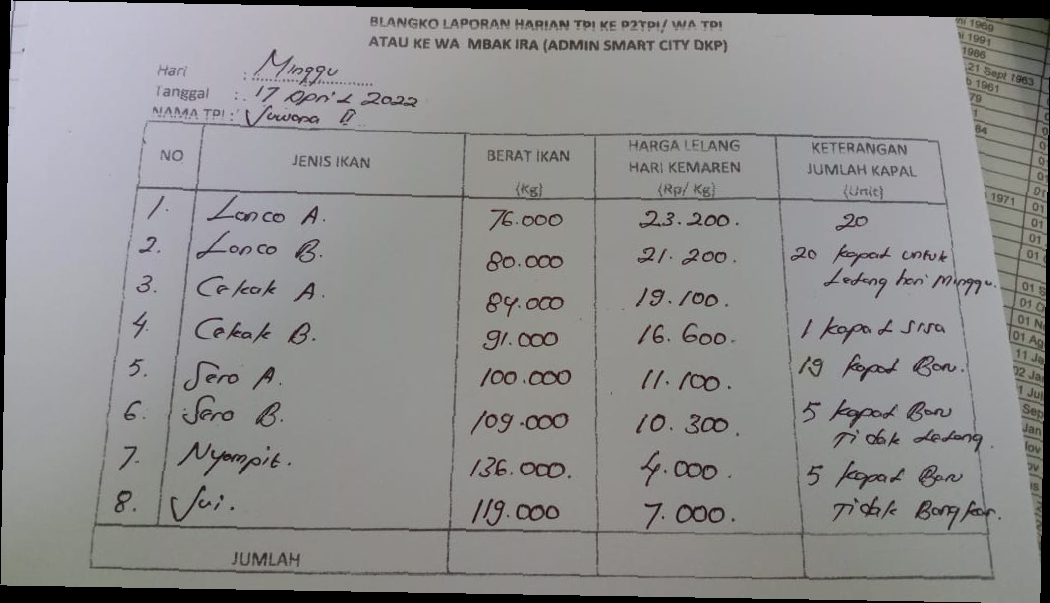 BLANGKO LAPORAN HARIAN TPI KE P2TPI/ WA TPI
ATAU KE WA MBAK IRA (ADMIN SMART CITY DKP)
Hari : Minggu
Tanggal : 17 April 2022
NAMA TPI : Juwana II
NO JENIS IKAN BERAT IKAN (Kg) HARGA LELANG HARI KEMAREN (Rp/ Kg) KETERANGAN JUMLAH KAPAL (Unit)
1. Lanco A. 76.000 23.200. 20
2. Lanco B. 80.000 21.200. 20 kapal untuk
Lelang hari Minggu.
3. Cekak A. 84.000 19.100.
4. Cekak B. 91.000 16.600. 1 kapal sisa
5. Sero A. 100.000 11.100. 19 kapal Baru.
6. Sero B. 109.000 10.300. 5 kapal Baru
Tidak Lelang.
7. Nyampit. 136.000. 4.000. 5 kapal Baru
8. Jui. 119.000 7.000. Tidak Bongkar.
JUMLAH
1969
1991
1986
21 Sept 1963
1961
79
84
1971